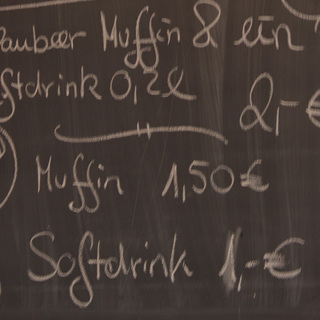 laubeer Muffin & ein
ftdrink 0,2l
2,- €
Muffin 1,50€
Softdrink 1,-€